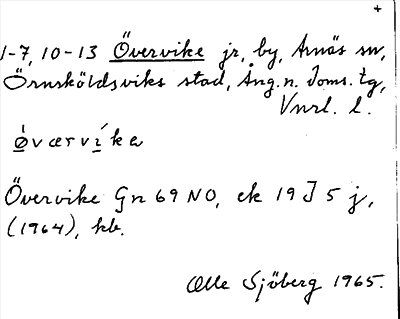 +
1-7, 10-13 Övervike jr, by, Arnäs sn,
Örnsköldsviks stad, Ång. n. Doms. tg,
Vnrl. l.
øværvika
Övervike Gn 69 NO, ek 19 J 5 j,
(1964), hb.
Olle Sjöberg 1965.